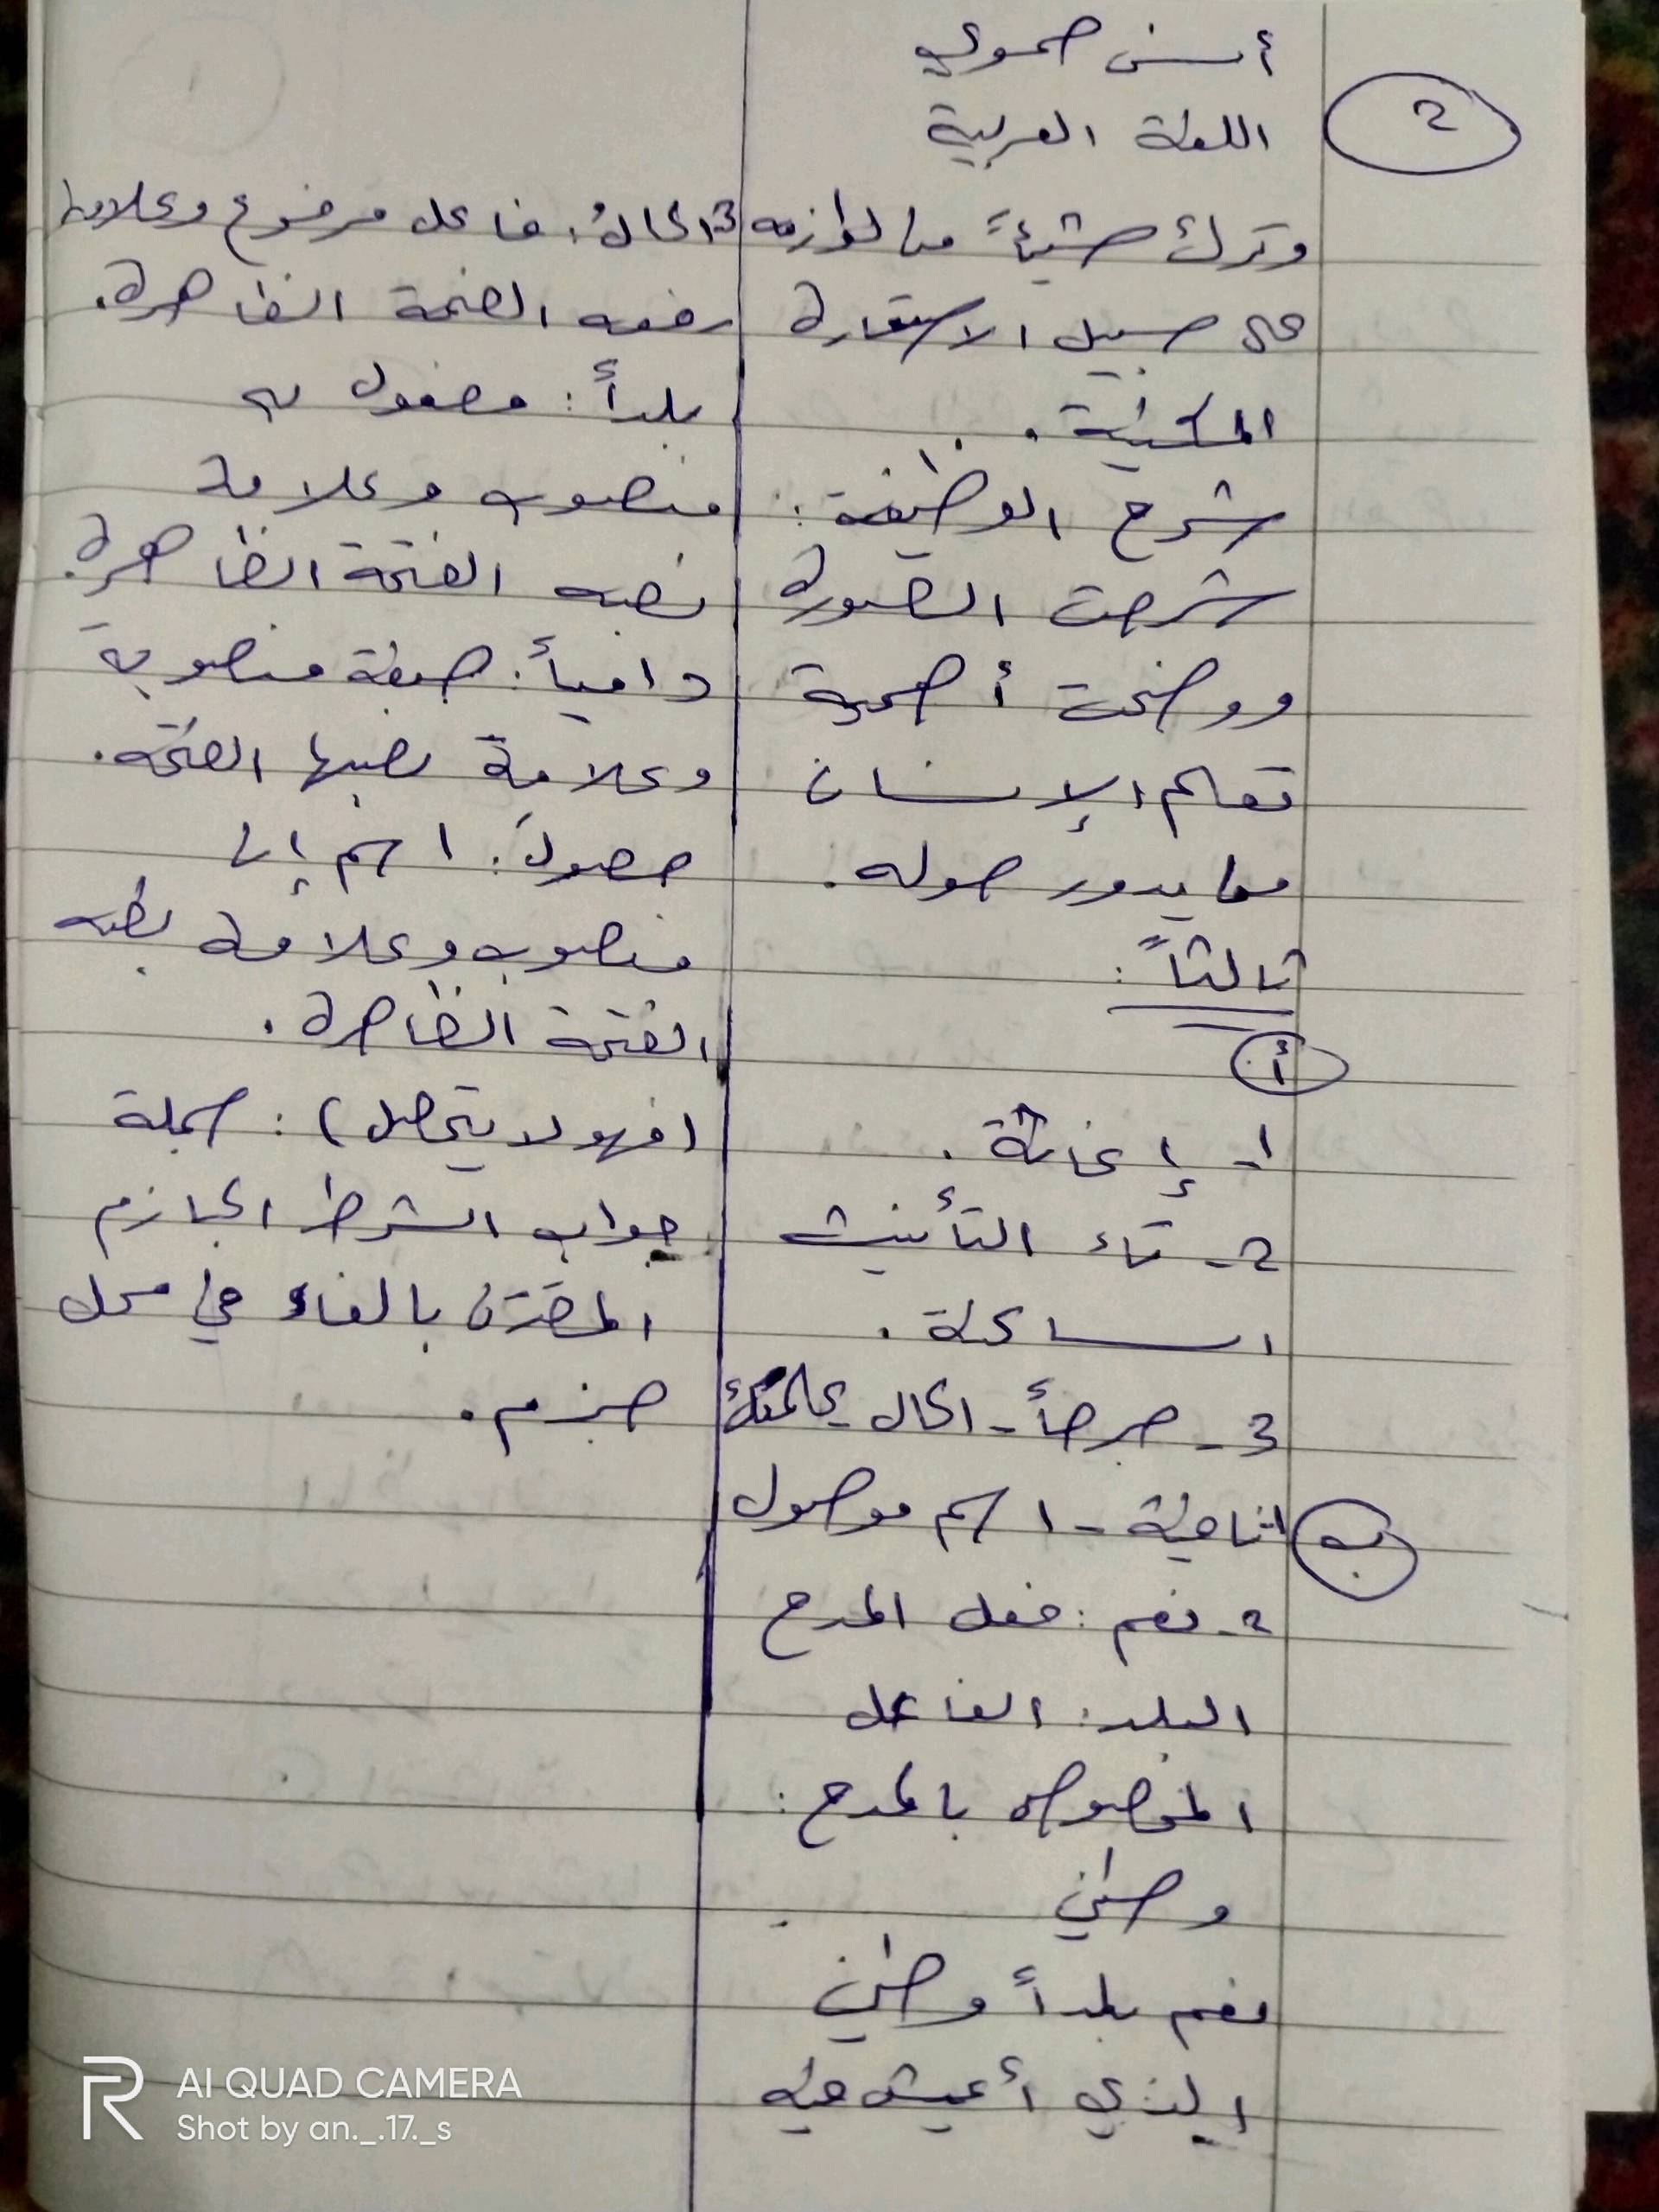 2
أنس حموي
اللغة العربية
وترك شيئاً من لوازمه
على سبيل الاستعارة
المكنية.
شرح الوظيفة:
شرحت الصورة
ووضحت أهمية
تعلم الإنسان
مما يدور حوله.
ثالثاً:
أ
1- إغاثة.
2- تاء التأنيث
الساكنة.
3- مرحاً - الحال
ب
1- نافية - اسم موصول
2- نعم: فعل المدح
البلد: الفاعل
المخصوص بالمدح:
وطني
نعم بلداً وطني
الذي أعيش فيه
3- الحالُ: فاعل مرفوع وعلامة
رفعه الضمة الظاهرة.
بلداً: مفعول به
منصوب وعلامة
نصبه الفتحة الظاهرة.
دامياً: صفة منصوبة
وعلامة نصبها الفتحة.
حصولَ: اسم إن
منصوب وعلامة نصبه
الفتحة الظاهرة.
(فهو لا يتحصل): جملة
جواب الشرط الجازم
المقترن بالفاء في محل
جزم.
AI QUAD CAMERA
Shot by an._.17._s